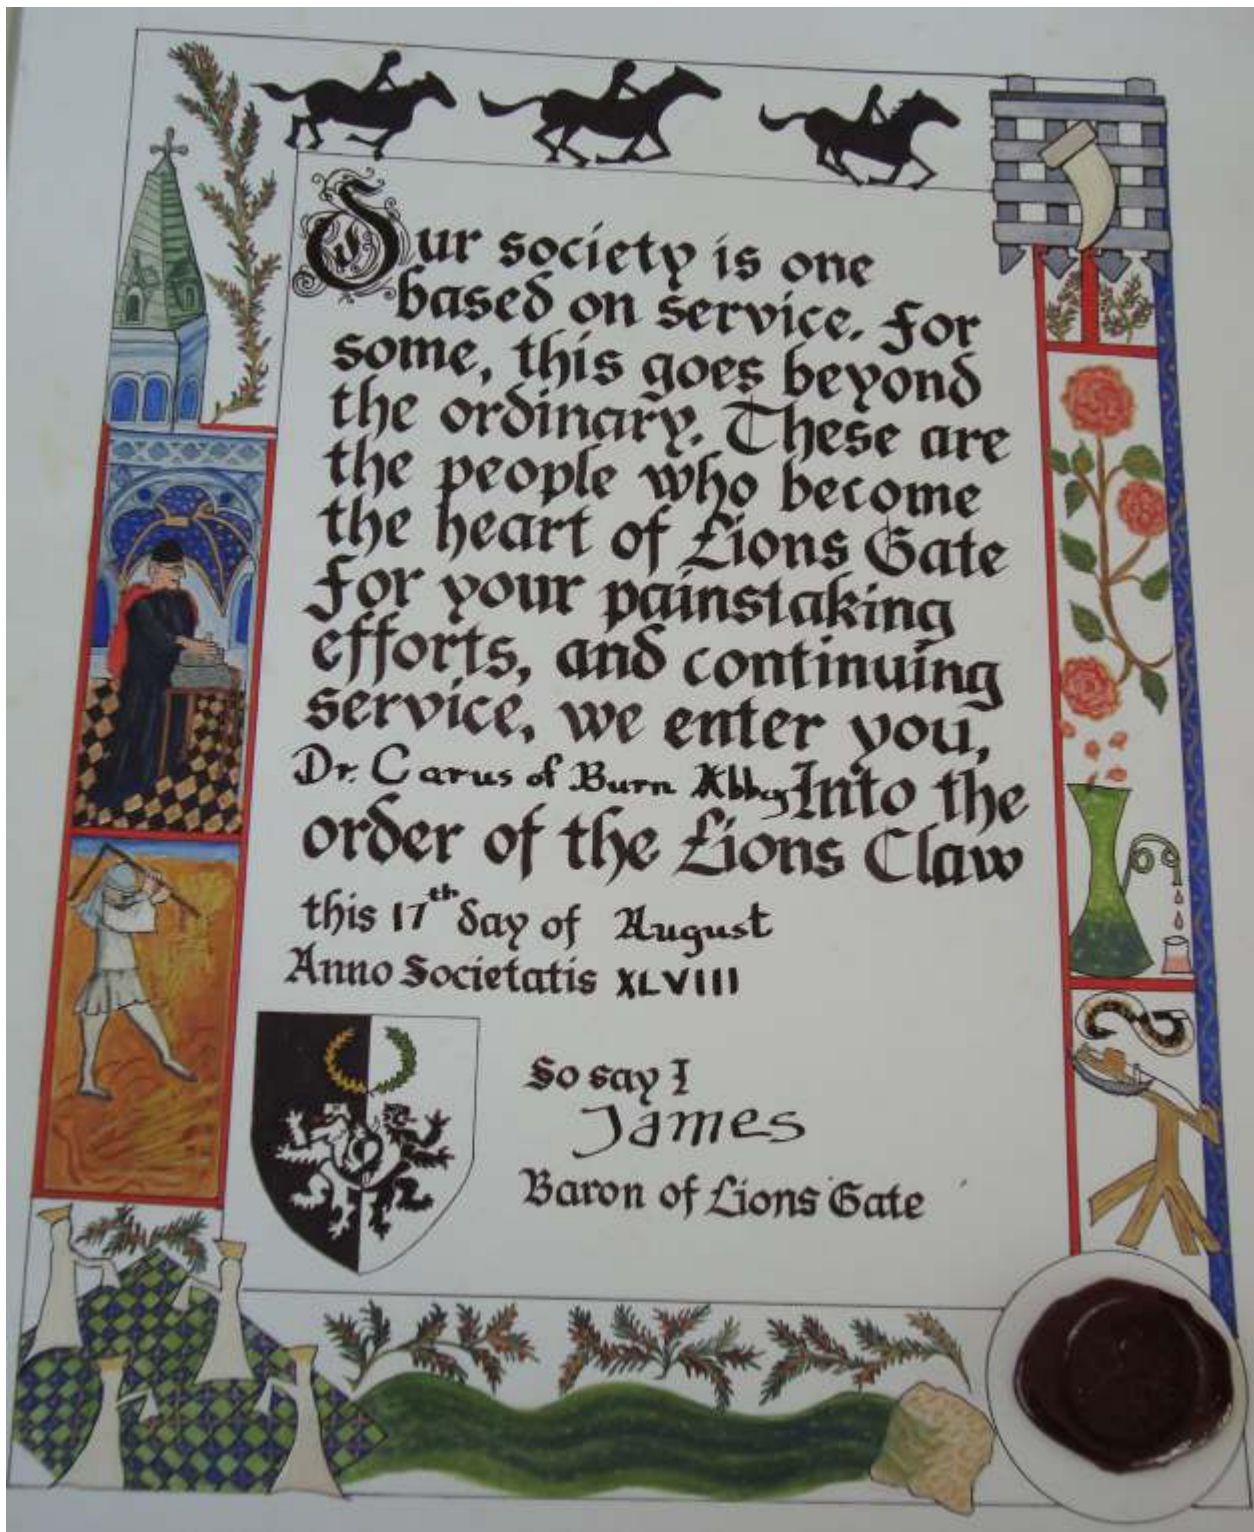 Our society is one
based on service. For
some, this goes beyond
the ordinary. These are
the people who become
the heart of Lions Gate
For your painstaking
efforts, and continuing
service, we enter you,
Dr. Carus of Burn Abby Into the
order of the Lions Claw
this 17th day of August
Anno Societatis XLVIII
So say I
James
Baron of Lions Gate